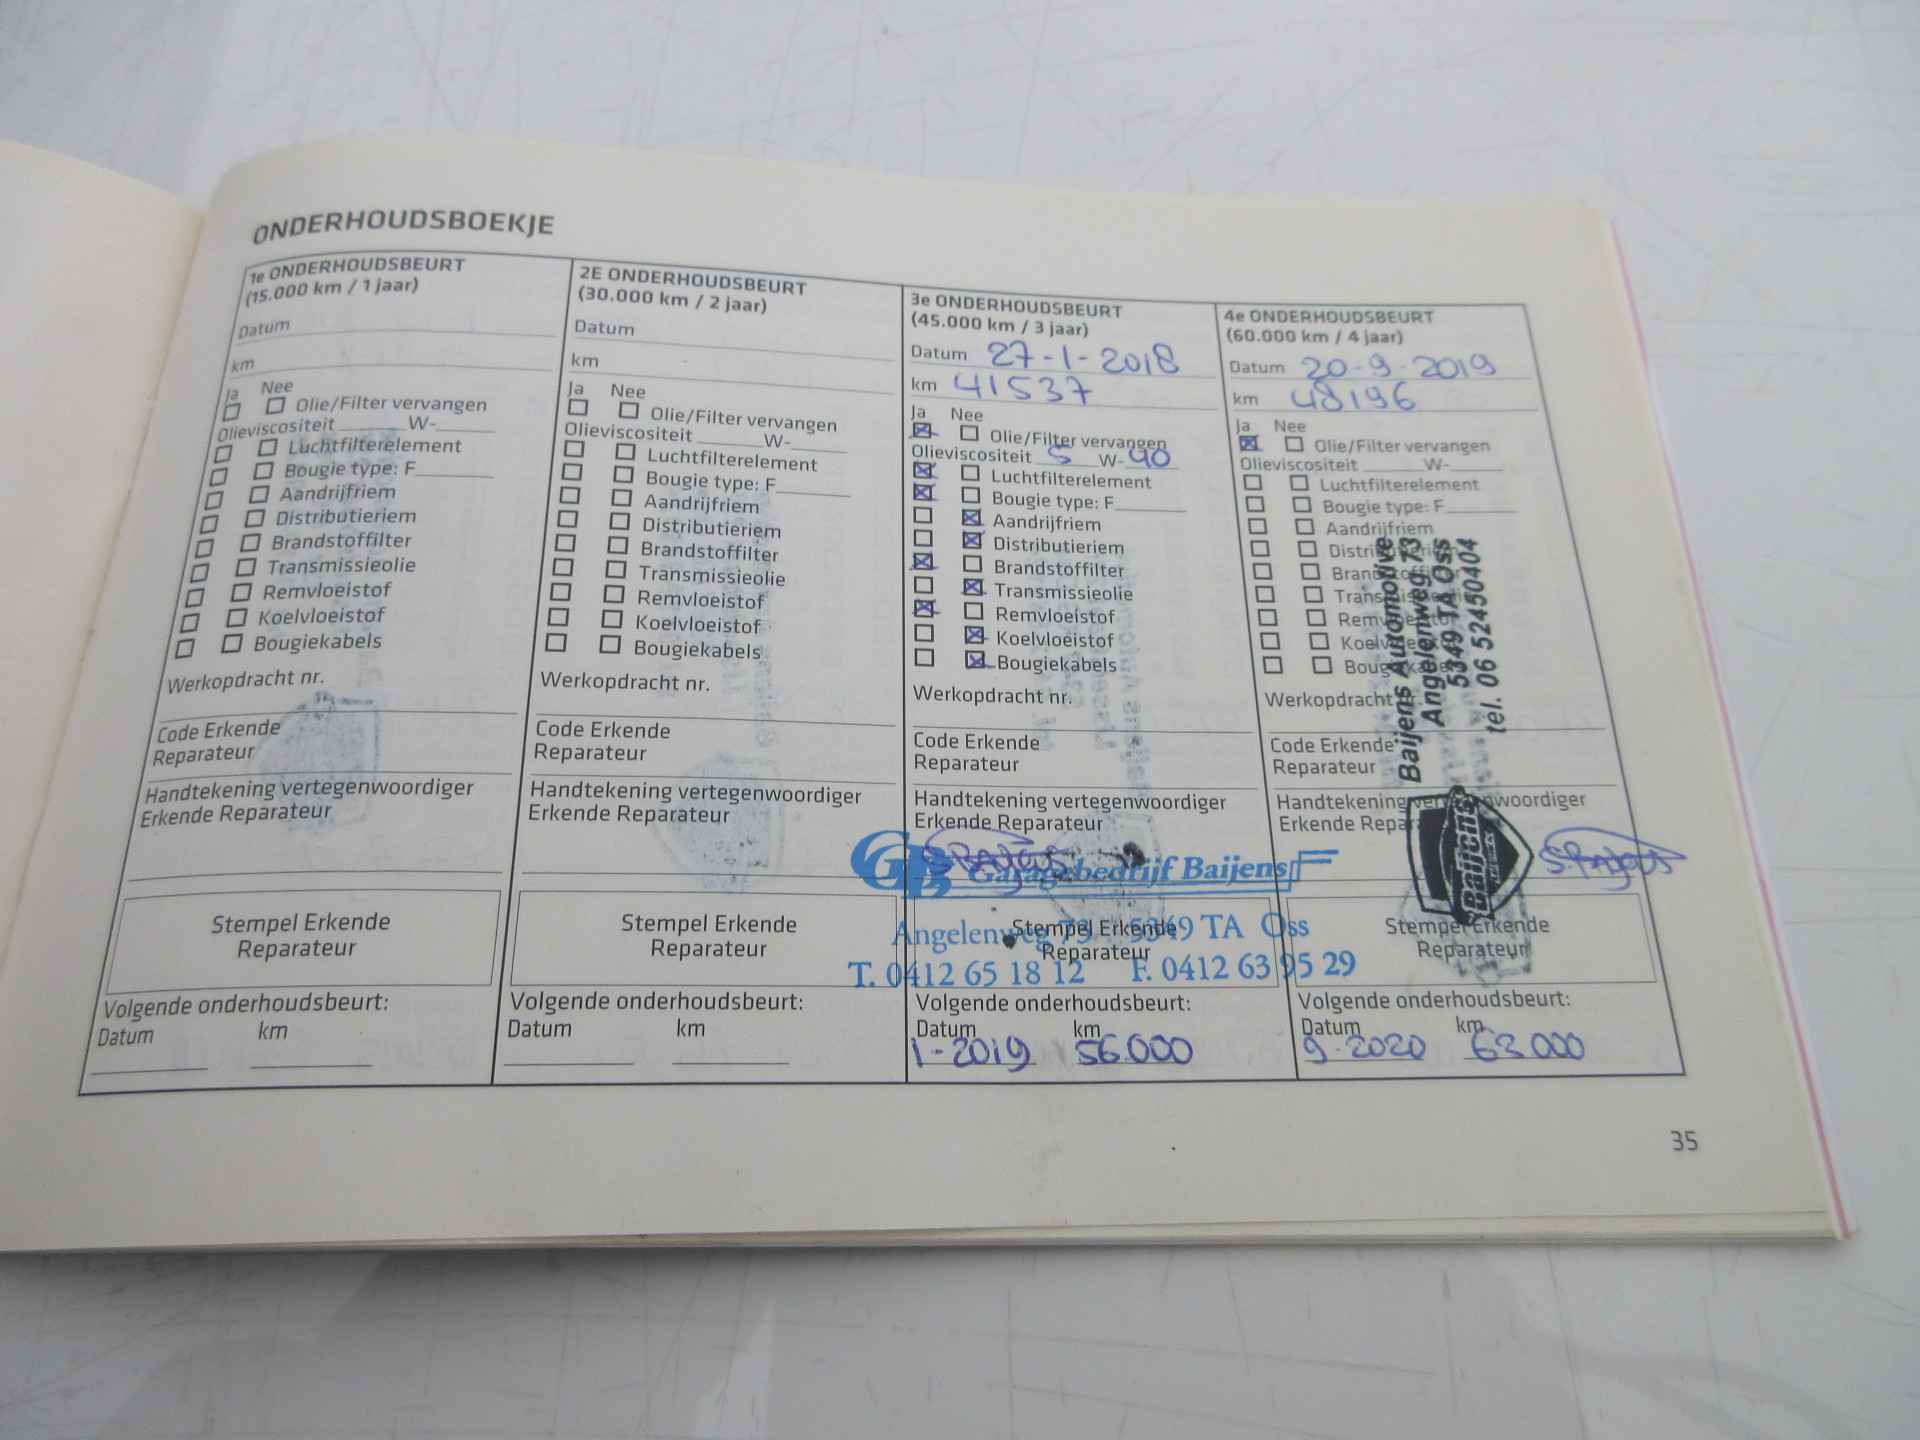 ONDERHOUDSBOEKJE
1e ONDERHOUDSBEURT
(15.000 km / 1 jaar)
Datum
km
Ja Nee
Olie/Filter vervangen
Olieviscositeit ______W-______
Luchtfilterelement
Bougie type: F______
Aandrijfriem
Distributieriem
Brandstoffilter
Transmissieolie
Remvloeistof
Koelvloeistof
Bougiekabels
Werkopdracht nr.
Code Erkende
Reparateur
Handtekening vertegenwoordiger
Erkende Reparateur
Stempel Erkende
Reparateur
Volgende onderhoudsbeurt:
Datum km
2E ONDERHOUDSBEURT
(30.000 km / 2 jaar)
Datum
km
Ja Nee
Olie/Filter vervangen
Olieviscositeit ______W-______
Luchtfilterelement
Bougie type: F______
Aandrijfriem
Distributieriem
Brandstoffilter
Transmissieolie
Remvloeistof
Koelvloeistof
Bougiekabels
Werkopdracht nr.
Code Erkende
Reparateur
Handtekening vertegenwoordiger
Erkende Reparateur
Stempel Erkende
Reparateur
Volgende onderhoudsbeurt:
Datum km
3e ONDERHOUDSBEURT
(45.000 km / 3 jaar)
Datum 27-1-2018
km 41537
Ja Nee
Olie/Filter vervangen
Olieviscositeit 5 W-40
Luchtfilterelement
Bougie type: F______
Aandrijfriem
Distributieriem
Brandstoffilter
Transmissieolie
Remvloeistof
Koelvloeistof
Bougiekabels
Werkopdracht nr.
Code Erkende
Reparateur
Handtekening vertegenwoordiger
Erkende Reparateur
GB Garagebedrijf Baijens
Angelenweg 73 5349 TA Oss
T. 0412 65 18 12 F. 0412 63 95 29
Stempel Erkende
Reparateur
Volgende onderhoudsbeurt:
Datum km
1-2019 56.000
4e ONDERHOUDSBEURT
(60.000 km / 4 jaar)
Datum 20-9-2019
km 48196
Ja Nee
Olie/Filter vervangen
Olieviscositeit ______W-______
Luchtfilterelement
Bougie type: F______
Aandrijfriem
Distributieriem
Brandstoffilter
Transmissieolie
Remvloeistof
Koelvloeistof
Bougiekabels
Werkopdracht nr.
Code Erkende
Reparateur
Handtekening vertegenwoordiger
Erkende Reparateur
Baijens Automotive
Angelenweg 73
5349 TA Oss
tel. 06 52450404
Baijens
Stempel Erkende
Reparateur
Volgende onderhoudsbeurt:
Datum km
9-2020 63.000
35